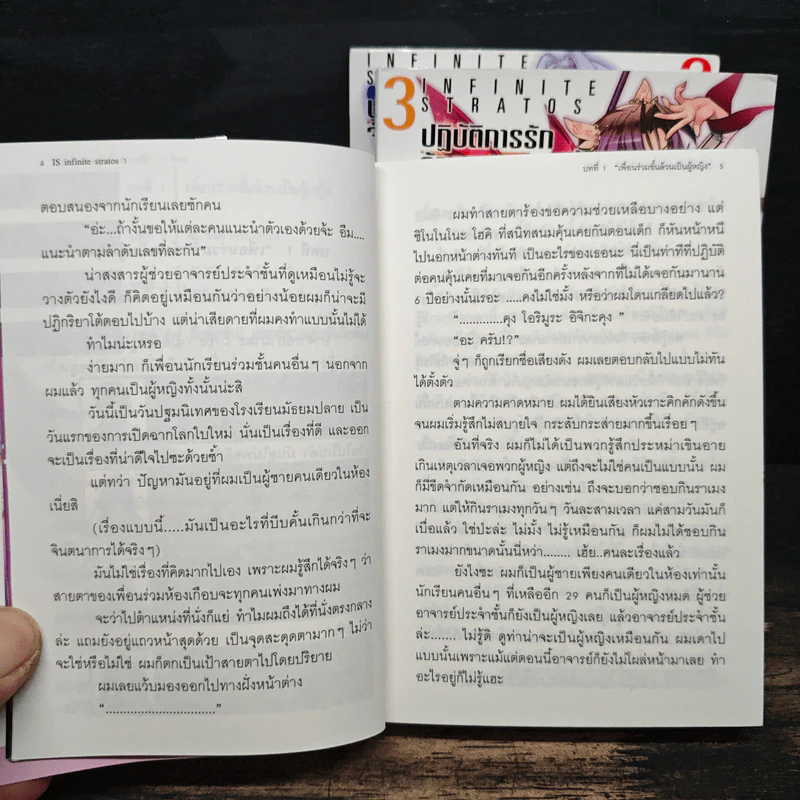 INFINITE
S
2
3
INFINITE
STRATOS
ปฏิบัติการรัก
4 IS infinite stratos 1
ตอบสนองจากนักเรียนเลยซักคน
"อ่ะ...ถ้างั้นขอให้แต่ละคนแนะนำตัวเองด้วยจ้ะ อืม....
แนะนำตามลำดับเลขที่ละกัน"
น่าสงสารผู้ช่วยอาจารย์ประจำชั้นที่ดูเหมือนไม่รู้จะ
วางตัวยังไงดี ก็คิดอยู่เหมือนกันว่าอย่างน้อยผมก็น่าจะมี
ปฏิกริยาโต้ตอบไปบ้าง แต่น่าเสียดายที่ผมคงทำแบบนั้นไม่ได้
ทำไมน่ะเหรอ
ง่ายมาก ก็เพื่อนนักเรียนร่วมชั้นคนอื่นๆ นอกจาก
ผมแล้ว ทุกคนเป็นผู้หญิงทั้งนั้นน่ะสิ
วันนี้เป็นวันปฐมนิเทศของโรงเรียนมัธยมปลาย เป็น
วันแรกของการเปิดฉากโลกใบใหม่ นั่นเป็นเรื่องที่ดี และออก
จะเป็นเรื่องที่น่าดีใจไปซะด้วยซ้ำ
แต่ทว่า ปัญหามันอยู่ที่ผมเป็นผู้ชายคนเดียวในห้อง
เนี่ยสิ
(เรื่องแบบนี้.....มันเป็นอะไรที่บีบคั้นเกินกว่าที่จะ
จินตนาการได้จริงๆ)
มันไม่ใช่เรื่องที่คิดมากไปเอง เพราะผมรู้สึกได้จริงๆ ว่า
สายตาของเพื่อนร่วมห้องเกือบจะทุกคนเพ่งมาทางผม
จะว่าไปตำแหน่งที่นั่งก็แย่ ทำไมผมถึงได้ที่นั่งตรงกลาง
ล่ะ แถมยังอยู่แถวหน้าสุดด้วย เป็นจุดสะดุดตามากๆ ไม่ว่า
จะใช่หรือไม่ใช่ ผมก็ตกเป็นเป้าสายตาไปโดยปริยาย
ผมเลยแว้บมองออกไปทางฝั่งหน้าต่าง
"..............................."
บทที่ 1 "เพื่อนร่วมชั้นล้วนเป็นผู้หญิง" 5
ผมทำสายตาร้องขอความช่วยเหลือบางอย่าง แต่
ชิโนโนโนะ โฮคิ ที่สนิทสนมคุ้นเคยกันตอนเด็ก ก็หันหน้าหนี
ไปนอกหน้าต่างทันที เป็นอะไรของเธอนะ นี่เป็นท่าทีที่ปฏิบัติ
ต่อคนคุ้นเคยที่มาเจอกันอีกครั้งหลังจากที่ไม่ได้เจอกันมานาน
6 ปีอย่างนั้นเรอะ .....คงไม่ใช่มั้ง หรือว่าผมโดนเกลียดไปแล้ว?
".............คุง โอริมูระ อิจิกะคุง "
"อะ ครับ!?"
จู่ๆ ก็ถูกเรียกชื่อเสียงดัง ผมเลยตอบกลับไปแบบไม่ทัน
ได้ตั้งตัว
ตามความคาดหมาย ผมได้ยินเสียงหัวเราะคิกคักดังขึ้น
จนผมเริ่มรู้สึกไม่สบายใจ กระสับกระส่ายมากขึ้นเรื่อยๆ
อันที่จริง ผมก็ไม่ได้เป็นพวกรู้สึกประหม่าเขินอาย
เกินเหตุเวลาเจอพวกผู้หญิง แต่ถึงจะไม่ใช่คนเป็นแบบนั้น ผม
ก็มีขีดจำกัดเหมือนกัน อย่างเช่น ถึงจะบอกว่าชอบกินราเมง
มาก แต่ให้กินราเมงทุกวันๆ วันละสามเวลา แค่สามวันมันก็
เบื่อแล้ว ใช่ปะล่ะ ไม่มั้ง ไม่รู้เหมือนกัน ก็ผมไม่ได้ชอบกิน
ราเมงมากขนาดนั้นนี่หว่า........ เฮ้ย..คนละเรื่องแล้ว
ยังไงซะ ผมก็เป็นผู้ชายเพียงคนเดียวในห้องเท่านั้น
นักเรียนคนอื่นๆ ที่เหลืออีก 29 คนก็เป็นผู้หญิงหมด ผู้ช่วย
อาจารย์ประจำชั้นก็ยังเป็นผู้หญิงเลย แล้วอาจารย์ประจำชั้น
ล่ะ....... ไม่รู้ดิ ดูท่าน่าจะเป็นผู้หญิงเหมือนกัน ผมเดาไป
แบบนั้นเพราะแม้แต่ตอนนี้อาจารย์ก็ยังไม่โผล่หน้ามาเลย ทำ
อะไรอยู่ก็ไม่รู้แฮะ